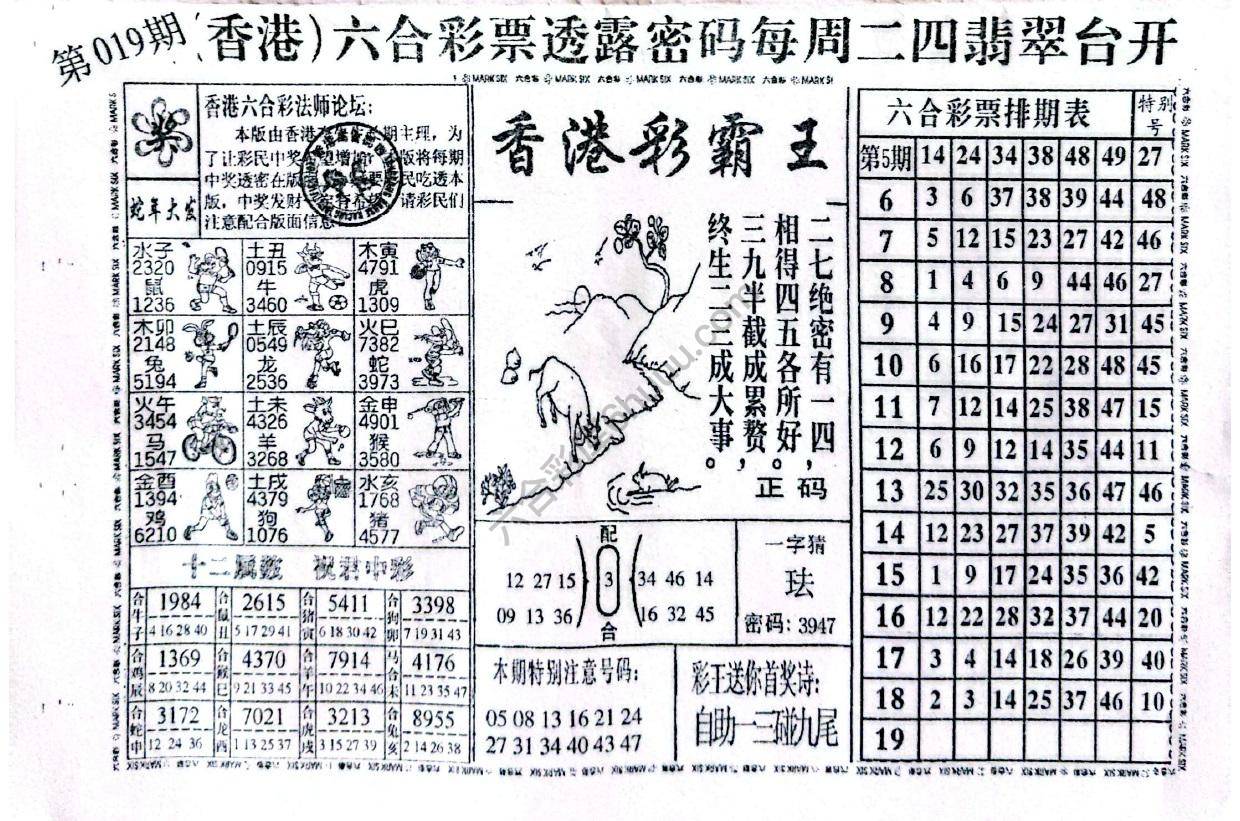 第019期
(香港)六合彩票透露密码每周二四翡翠台开
香港六合彩法师论坛:
本版由香港
期主理,为
了让彩民中奖
望增加
版将每期
中奖透密在版
要
民吃透本
版,中奖发财
请彩民们
注意配合版面信息
奖
蛇年大发
水子 土丑 木寅
2320 0915 4791
鼠 牛 虎
1236 3460 1309
木卯 土辰 火巳
2148 0549 7382
兔 龙 蛇
5194 2536 3973
火午 土未 金申
3454 4326 4901
马 羊 猴
1547 3268 3580
金酉 土戌 水亥
1394 4379 1768
鸡 狗 猪
6210 1076 4577
十二属数 祝君中彩
合牛子 1984 4 16 28 40
合鼠丑 2615 5 17 29 41
合猪寅 5411 6 18 30 42
合狗卯 3398 7 19 31 43
合鸡辰 1369 8 20 32 44
合猴巳 4370 9 21 33 45
合羊午 7914 10 22 34 46
马合未 4176 11 23 35 47
合蛇申 3172 12 24 36
合龙酉 7021 1 13 25 37
合虎戌 3213 3 15 27 39
合兔亥 8955 2 14 26 38
香港彩霸王
二七绝密有一四,
相得四五各所好。
三九半截成累赘,
终生二三成大事。
正码
配
12 27 15 3 34 46 14
09 13 36 16 32 45
合
一字猜
珐
密码: 3947
本期特别注意号码:
05 08 13 16 21 24
27 31 34 40 43 47
彩王送你首奖诗:
自助一三碰九尾
六合彩票排期表 特别号
第5期 14 24 34 38 48 49 27
6 3 6 37 38 39 44 48
7 5 12 15 23 27 42 46
8 1 4 6 9 44 46 27
9 4 9 15 24 27 31 45
10 6 16 17 22 28 48 45
11 7 12 14 25 38 47 15
12 6 9 12 14 35 44 11
13 25 30 32 35 36 47 46
14 12 23 27 37 39 42 5
15 1 9 17 24 35 36 42
16 12 22 28 32 37 44 20
17 3 4 14 18 26 39 40
18 2 3 14 25 37 46 10
19